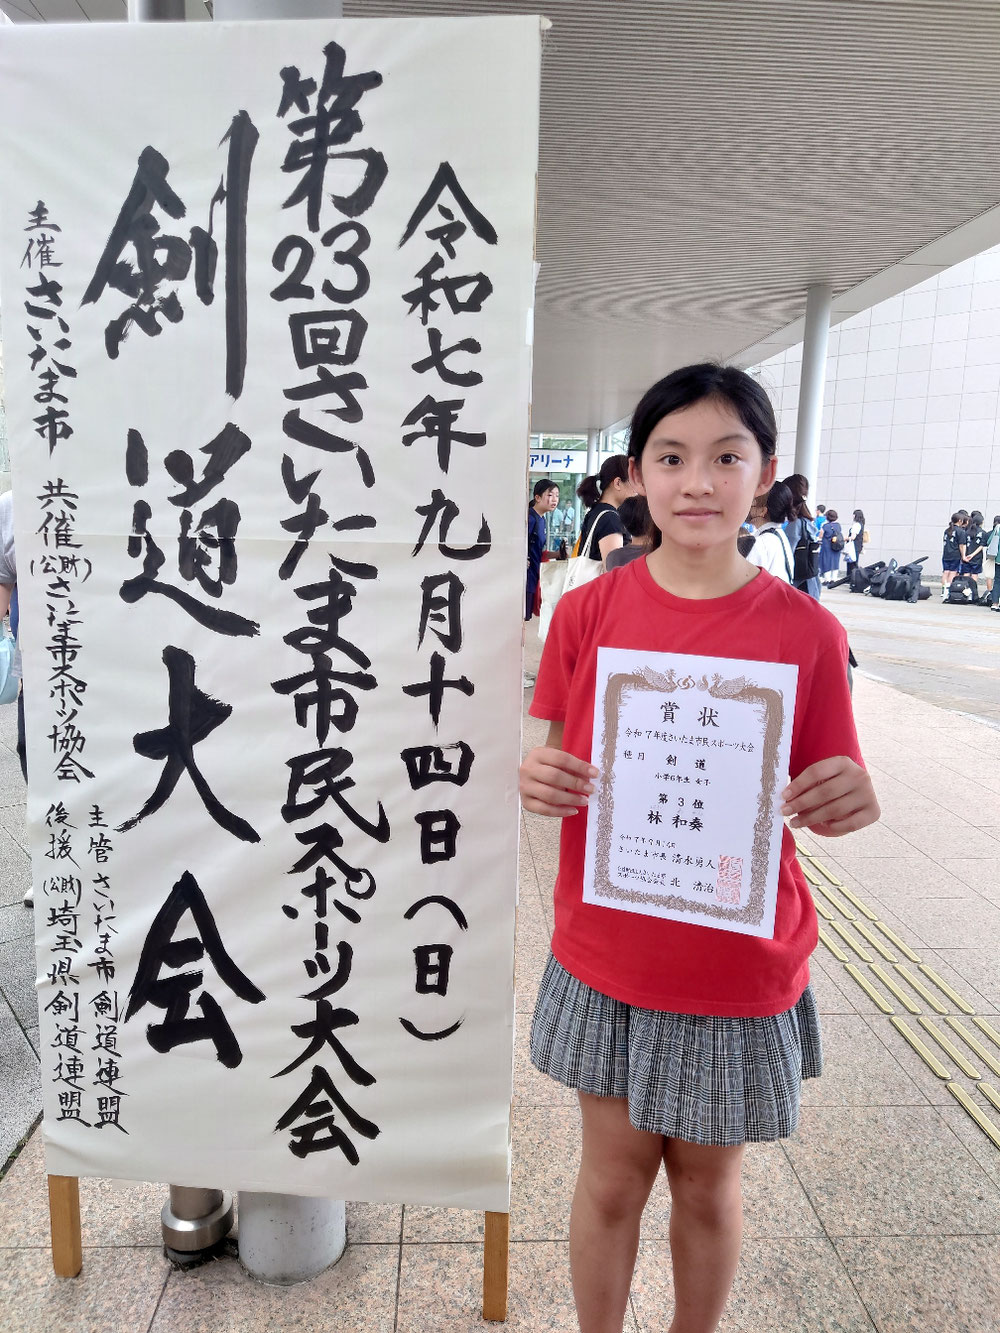 令和七年九月十四日(日)
第23回さいたま市民スポーツ大会
剣道大会
主催さいたま市
共催(公財)さいたま市スポーツ協会
主管さいたま市剣道連盟
後援(公財)埼玉県剣道連盟
アリーナ
賞状
令和7年度さいたま市民スポーツ大会
種目 剣道
小学6年生 女子
第3位
林 和奏
さいたま市長 清水勇人
スポーツ協会会長 北 清治